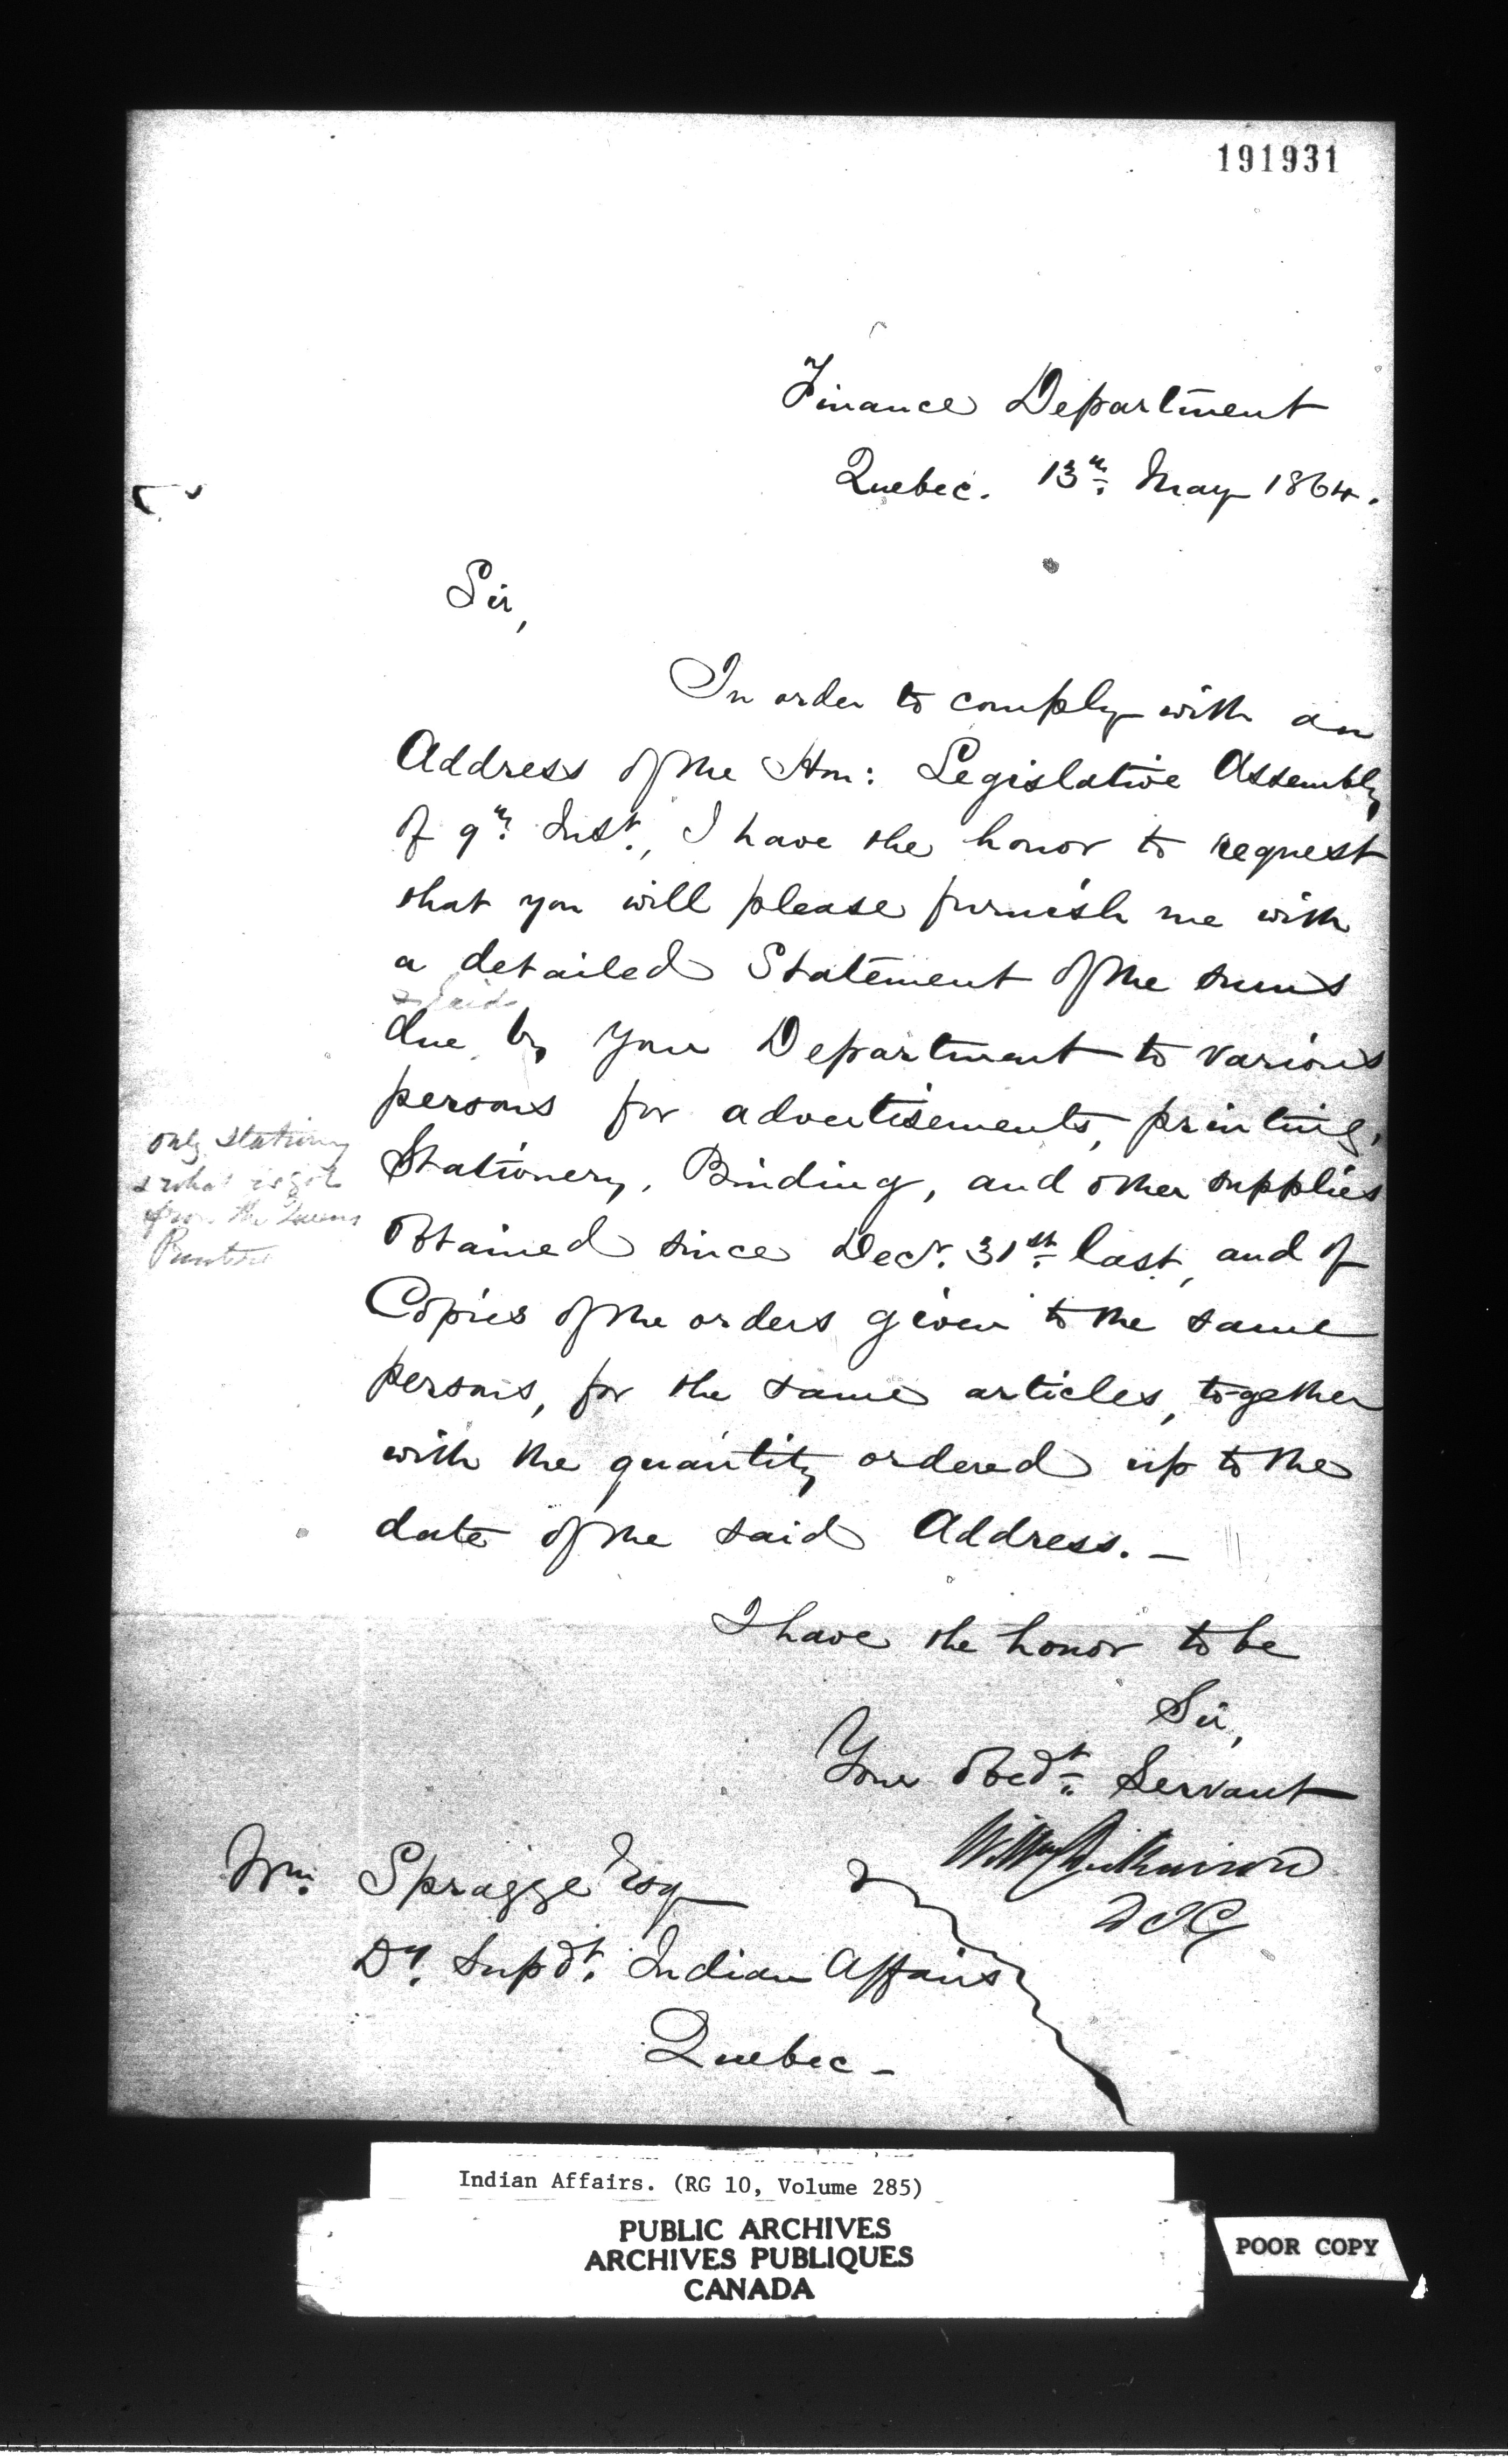 191931
Finance Department
Quebec. 13th May 1864.
Sir,
In order to comply with an
Address of the Hon: Legislative Assembly
of 9th Inst., I have the honor to request
that you will please furnish me with
a detailed Statement of the sums
& paid
due by your Department to various
persons for advertisements, printing,
Stationery, Binding, and other supplies
obtained since Decr. 31st last, and of
Copies of the orders given to the same
persons, for the same articles, together
with the quantity ordered up to the
date of the said Address. —
only stationery
& what is got
from the Queens
Printer
I have the honor to be
Sir,
Your Obedt. Servant
Wm Dickinson
D I G
Wm. Spragge Esq
Dy. Supdt. Indian Affairs
Quebec —
Indian Affairs. (RG 10, Volume 285)
PUBLIC ARCHIVES
ARCHIVES PUBLIQUES
CANADA
POOR COPY